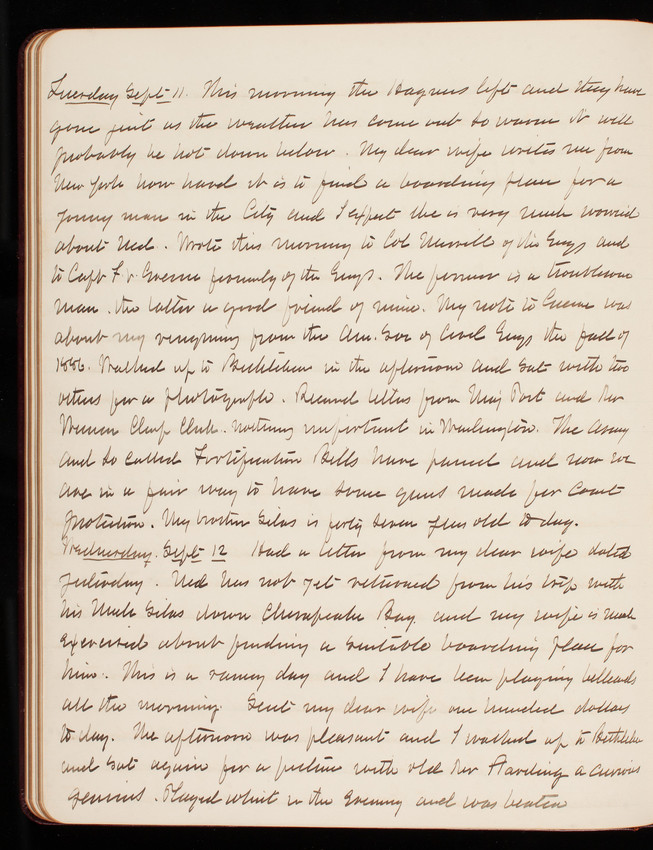 Tuesday Sept 11. This morning the Haynes left and they have
gone just as the weather has come out so warm it will
probably be hot down below. My dear wife writes me from
New York how hard it is to find a boarding place for a
young man in the City and I expect she is very much worried
about Ned. Wrote this morning to Col Merrill of the Engs and
to Capt F. v. Greene formerly of the Engs. The former is a troublesome
man. the latter a good friend of mine. My note to Greene was
about my resigning from the Am. Soc of Civil Engs the fall of
1886. Walked up to Bethlehem in the afternoon and sat with two
others for a photograph. Received letters from Maj Post and Mr
Warren Chief Clerk. nothing important in Washington. The Army
and so called Fortification Bills have passed and now we
are in a fair way to have some guns made for Coast
protection. My brother Silas is forty seven years old to day.
Wednesday. Sept 12 Had a letter from my dear wife dated
yesterday. Ned has not yet returned from his trip with
his Uncle Silas down Chesapeake Bay and my wife is much
exercised about finding a suitable boarding place for
him. This is a rainy day and I have been playing billiards
all the morning. Sent my dear wife one hundred dollars
to day. The afternoon was pleasant and I walked up to Bethlehem
and sat again for a picture with old Mr Harding a curious
genius. Played whist in the Evening and was beaten